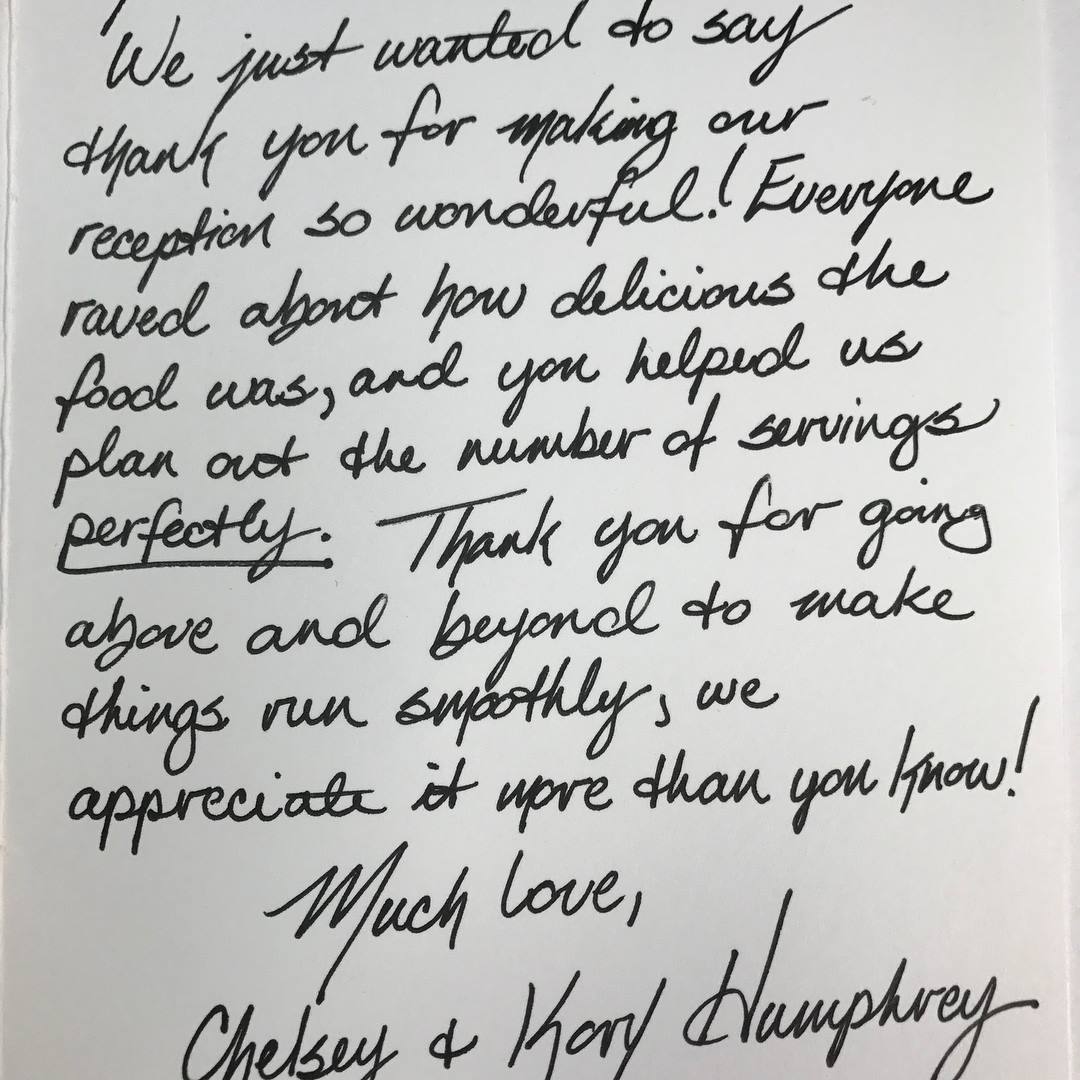 We just wanted to say
thank you for making our
reception so wonderful! Everyone
raved about how delicious the
food was, and you helped us
plan out the number of servings
perfectly. Thank you for going
above and beyond to make
things run smoothly, we
appreciate it more than you know!
Much love,
Chelsey & Humphrey